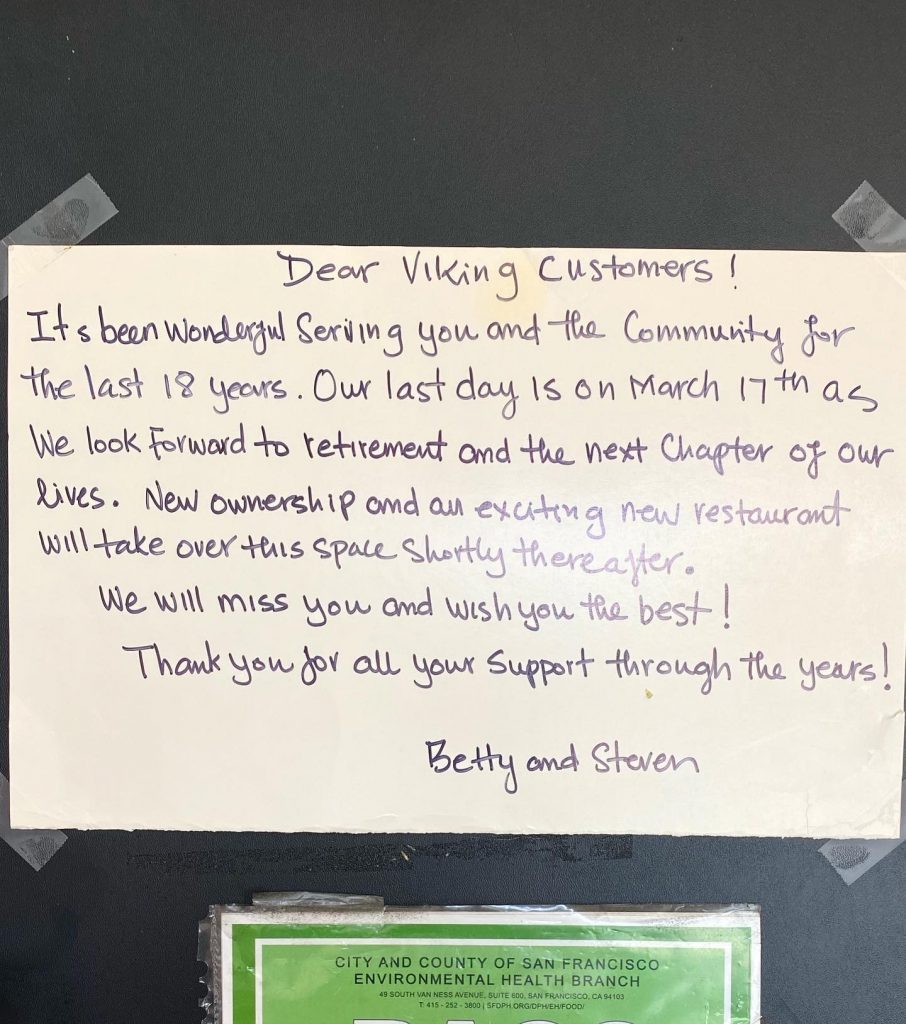 Dear Viking Customers!
Its been Wonderful Serving you and the Community for
the last 18 years. Our last day is on March 17th as
We look forward to retirement and the next Chapter of our
lives. New ownership and an exciting new restaurant
will take over this space shortly thereafter.
We will miss you and wish you the best!
Thank you for all your Support through the years!
Betty and Steven
CITY AND COUNTY OF SAN FRANCISCO
ENVIRONMENTAL HEALTH BRANCH
49 SOUTH VAN NESS AVENUE, SUITE 600, SAN FRANCISCO, CA 94103
T: 415 - 252 - 3800 | SFDPH.ORG/DPH/EH/FOOD/